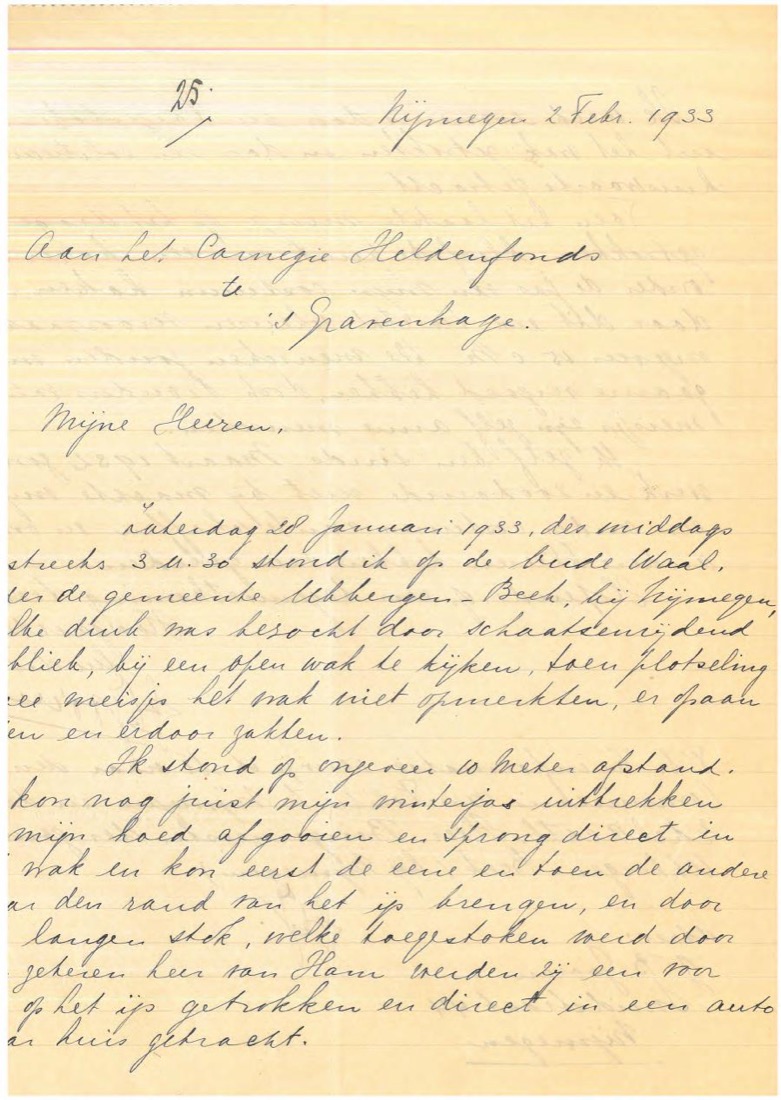 25.
Nijmegen 2 Febr. 1933
Aan het Carnegie Heldenfonds
te
's Gravenhage.
Mijne Heeren,
Zaterdag 28 Januari 1933, des middags
streeks 3 u. 30 stond ik op de Oude Waal,
der de gemeente Ubbergen - Beek, bij Nijmegen,
lke druk was bezocht door schaatsenrijdend
bliek, bij een open wak te kijken, toen plotseling
ee meisjes het wak niet opmerkten, er opaan
en en erdoor zakten.
Ik stond op ongeveer 10 Meter afstand.
kon nog juist mijn winterjas uittrekken
mijn hoed afgooien en sprong direct in
wak en kon eerst de eene en toen de andere
ar den rand van het ijs brengen, en door
langen stok, welke toegestoken werd door
zekeren heer van Ham werden zij een voor
op het ijs getrokken en direct in een auto
ar huis gebracht.